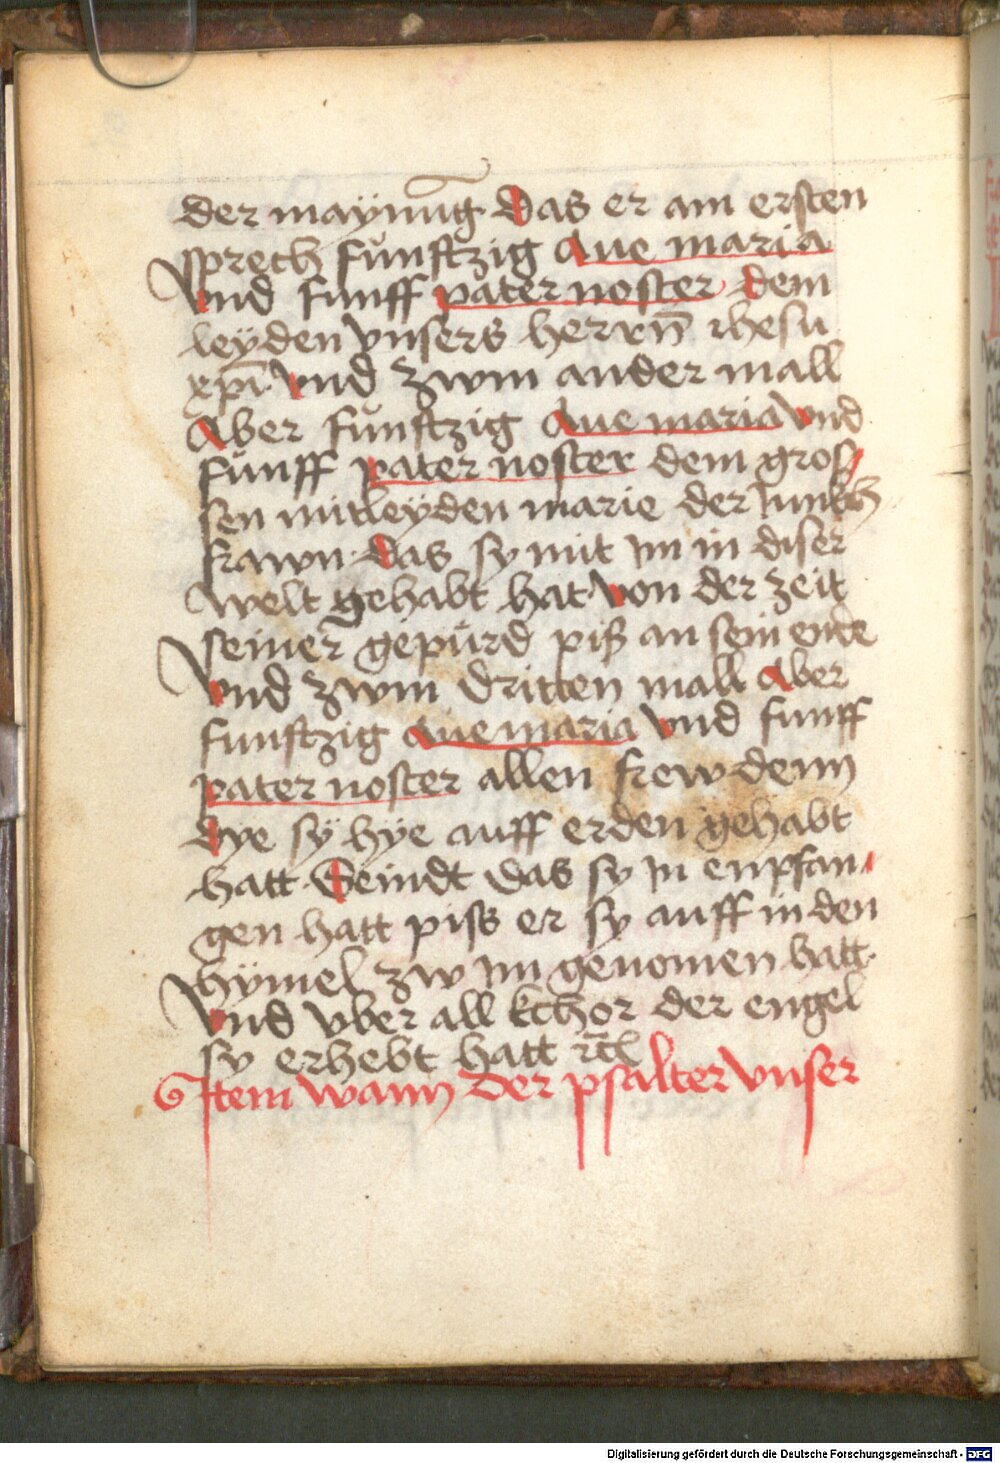 der maÿnu̅g das er am ersten
sprech fůnftzig Aue maria
vnd funff pater noster dem
leÿden vnsers herrn̅ ihesu
xpi̅ vnd zwm ander mall
Aber fůnftzig Aue maria vnd
fůnff pater noster dem gros/
sen mitleÿden marie der Junkch
frawn · das sy mit im in diser
welt gehabt hat von der zeit
seiner gepůrd piß an sein ende
vnd zwm dritten mall Aber
funftzig Aue maria vnd funff
pater noster allen frewdenn
dye sÿ hÿe auff erden gehabt
hatt Seindt das sy in enpfan/
gen hatt piss er sy auff in den
hÿmel zw im genomen hatt·
vnd vber all kchor der engel
sy erhebt hatt rc̅
Item wann der psalter vnser
Digitalisierung gefördert durch die Deutsche Forschungsgemeinschaft - DFG